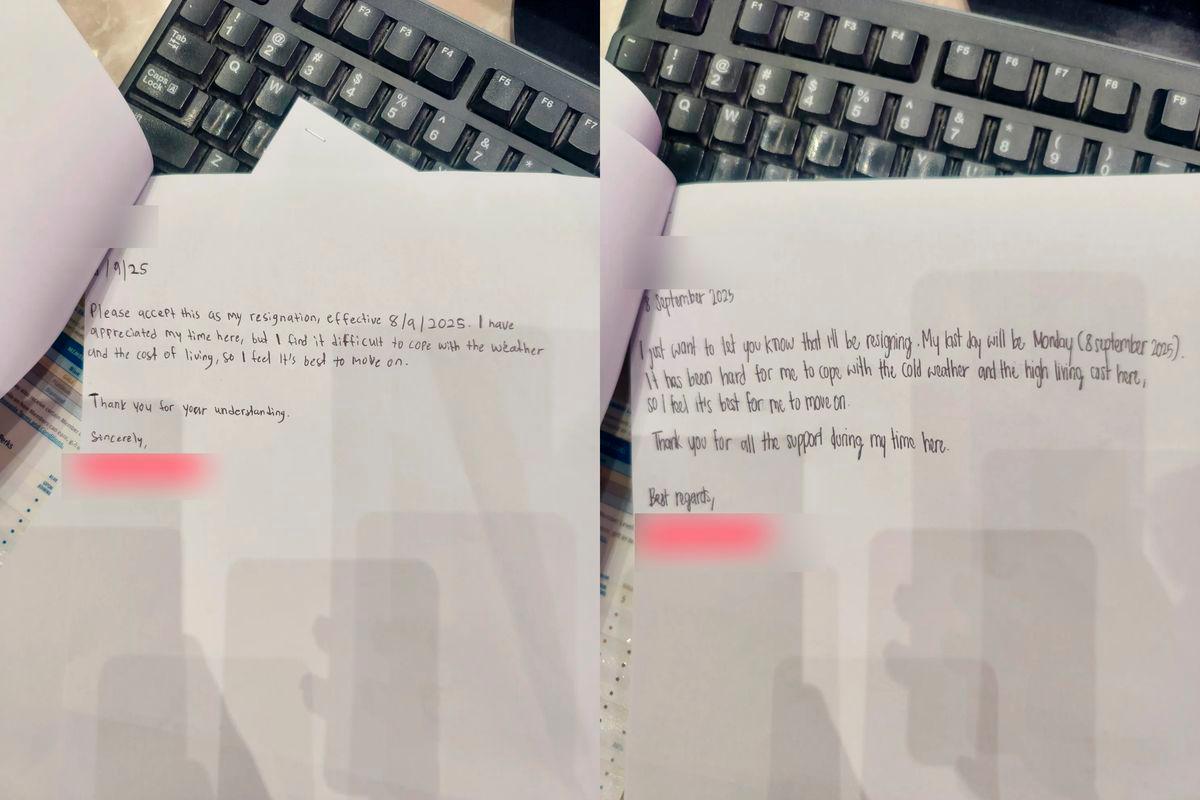 /9/25
Please accept this as my resignation, effective 8/9/2025. I have
appreciated my time here, but I find it difficult to cope with the weather
and the cost of living, so I feel it's best to move on.
Thank you for your understanding.
Sincerely,
8 September 2025
I just want to let you know that I'll be resigning. My last day will be Monday (8 september 2025).
It has been hard for me to cope with the cold weather and the high living cost here,
so I feel it's best for me to move on.
Thank you for all the support during my time here.
Best regards,
Tab
Caps Lock
! 1
@ 2
# 3
$ 4
% 5
^ 6
& 7
Q
W
Z
F2
F3
F4
F5
F6
F7
F1
F2
F3
F4
F5
F6
F7
F8
F9
~
! 1
@ 2
# 3
$ 4
% 5
^ 6
& 7
* 8
( 9
Q
W
Y